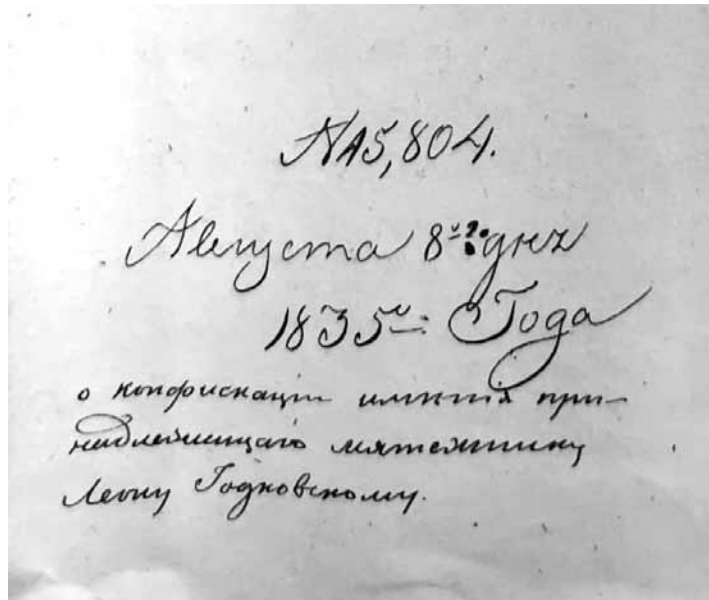 № 15,804.
Августа 8го дня
1835го Года
о конфискации имѣнія при-
надлежащаго мятежнику
Леону Годковскому.